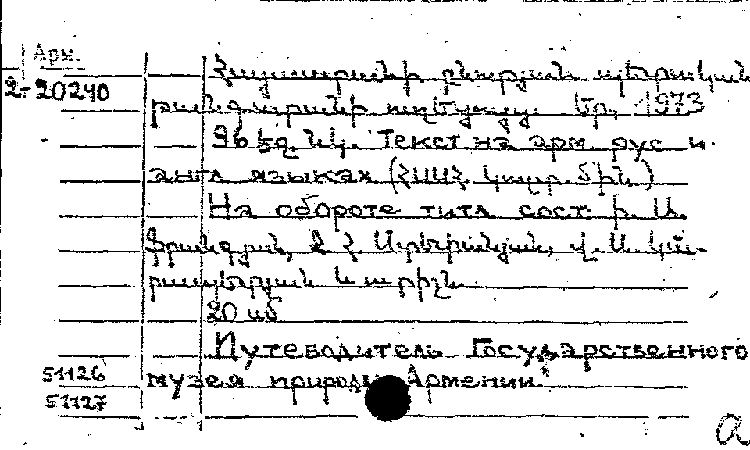 Арм.
2-20240
Հայաստանի բնության պետական
թանգարանի ուղեցույց. Եր., 1973
96 էջ. նկ. Текст на арм. рус и
англ языках (ՀՍՍՀ կուլտ. մին.)
На обороте тит.л сост: Ի. Ա.
20 սմ
Путеводитель Государственного
51126 музея природы Армении.
51127
a